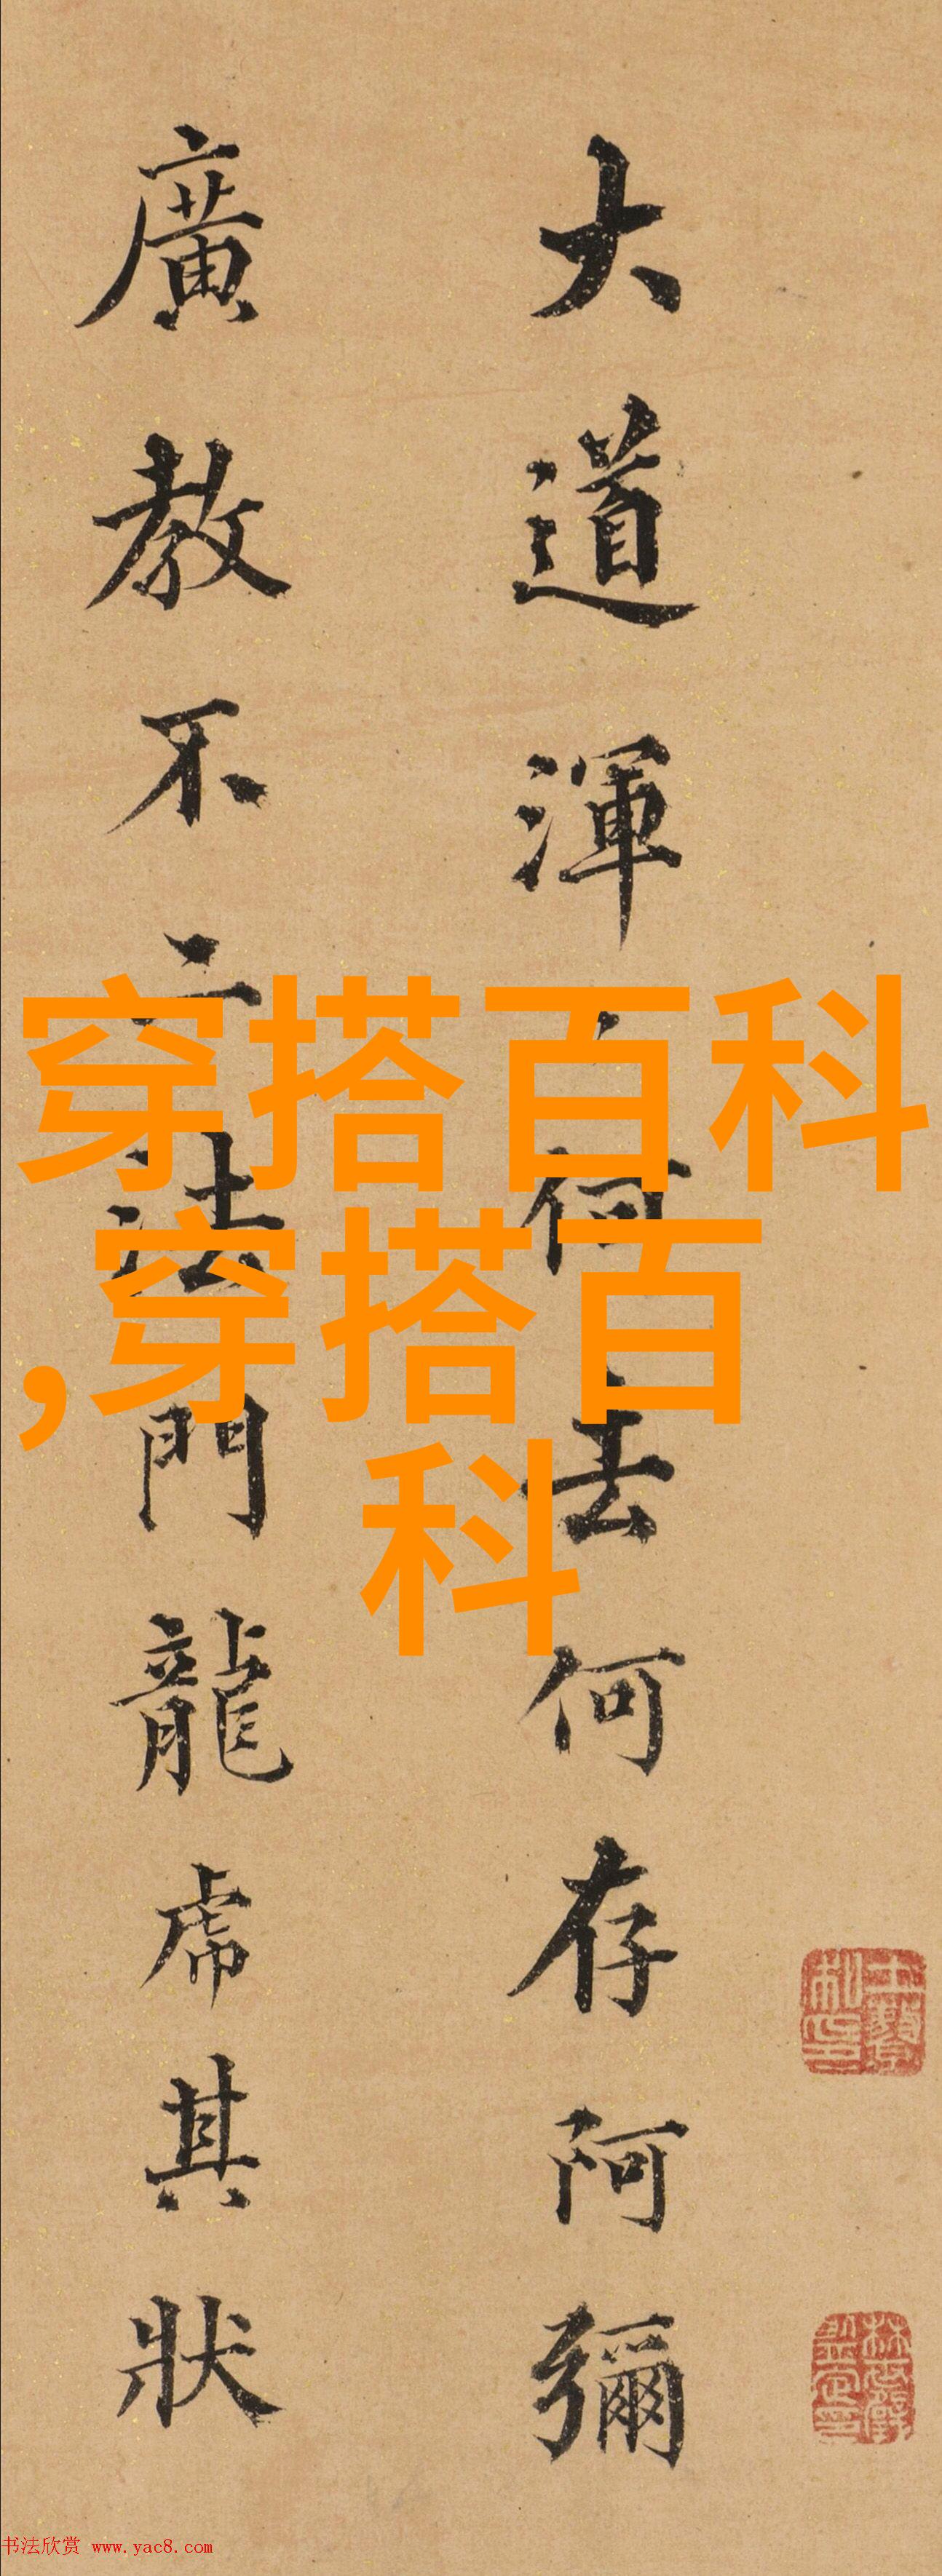 大道渾何去何存阿彌
廣教不二法門龍虎其狀
穿搭百科
,穿搭百
科
书法欣赏 www.yac8.com